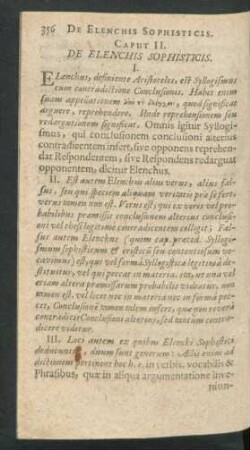 356 DE ELENCHIS SOPHISTICIS.
CAPUT II.
DE ELENCHIS SOPHISTICIS.
I.
ELenchus, definiente Aristotele, est Syllogismus
cum contradictione Conclusionis. Habet enim
suam appellationem quod significat
arguere, reprehendere. Unde reprehensionem seu
redargutionem significat. Omnis igitur Syllogis-
mus, qui conclusionem conclusioni alterius
contradicentem infert, sive opponens reprehen-
dat Respondentem, sive Respondens redarguat
opponentem, dicitur Elenchus.
II. Est autem Elenchus alius verus, alius fal-
sus, seu qui speciem aliquam veritatis præ se fert,
verus tamen non est. Verus est, qui ex veris vel pro-
babilibus præmissis conclusionem alterius conclusio-
ni vel thesi legitime contradicentem colligit; Fal-
sus autem Elenchus (quem cap. præced. Syllogi-
smum sophisticum et eristicū seu contentiosum vo-
cavimus) est, qui vel formâ Syllogisticâ legitimâ de-
stituitur, vel qui peccat in materia, etsi, ut una vel
etiam altera præmissarum probabilis videatur, non
tamen est, vel licet nec in materia nec in forma pec-
cet, Conclusionē tamen talem infert, quæ non reverà
contradicit Conclusioni alterius, sed tantum contra-
dicere videtur.
III. Loci autem ex quibus Elenchi Sophistici
deducuntur, duum sunt generum: Alii enim ad
dictionem pertinent hoc h. e. in verbis, vocabulis &
Phrasibus, quæ in aliqua argumentatione inve-
niun-